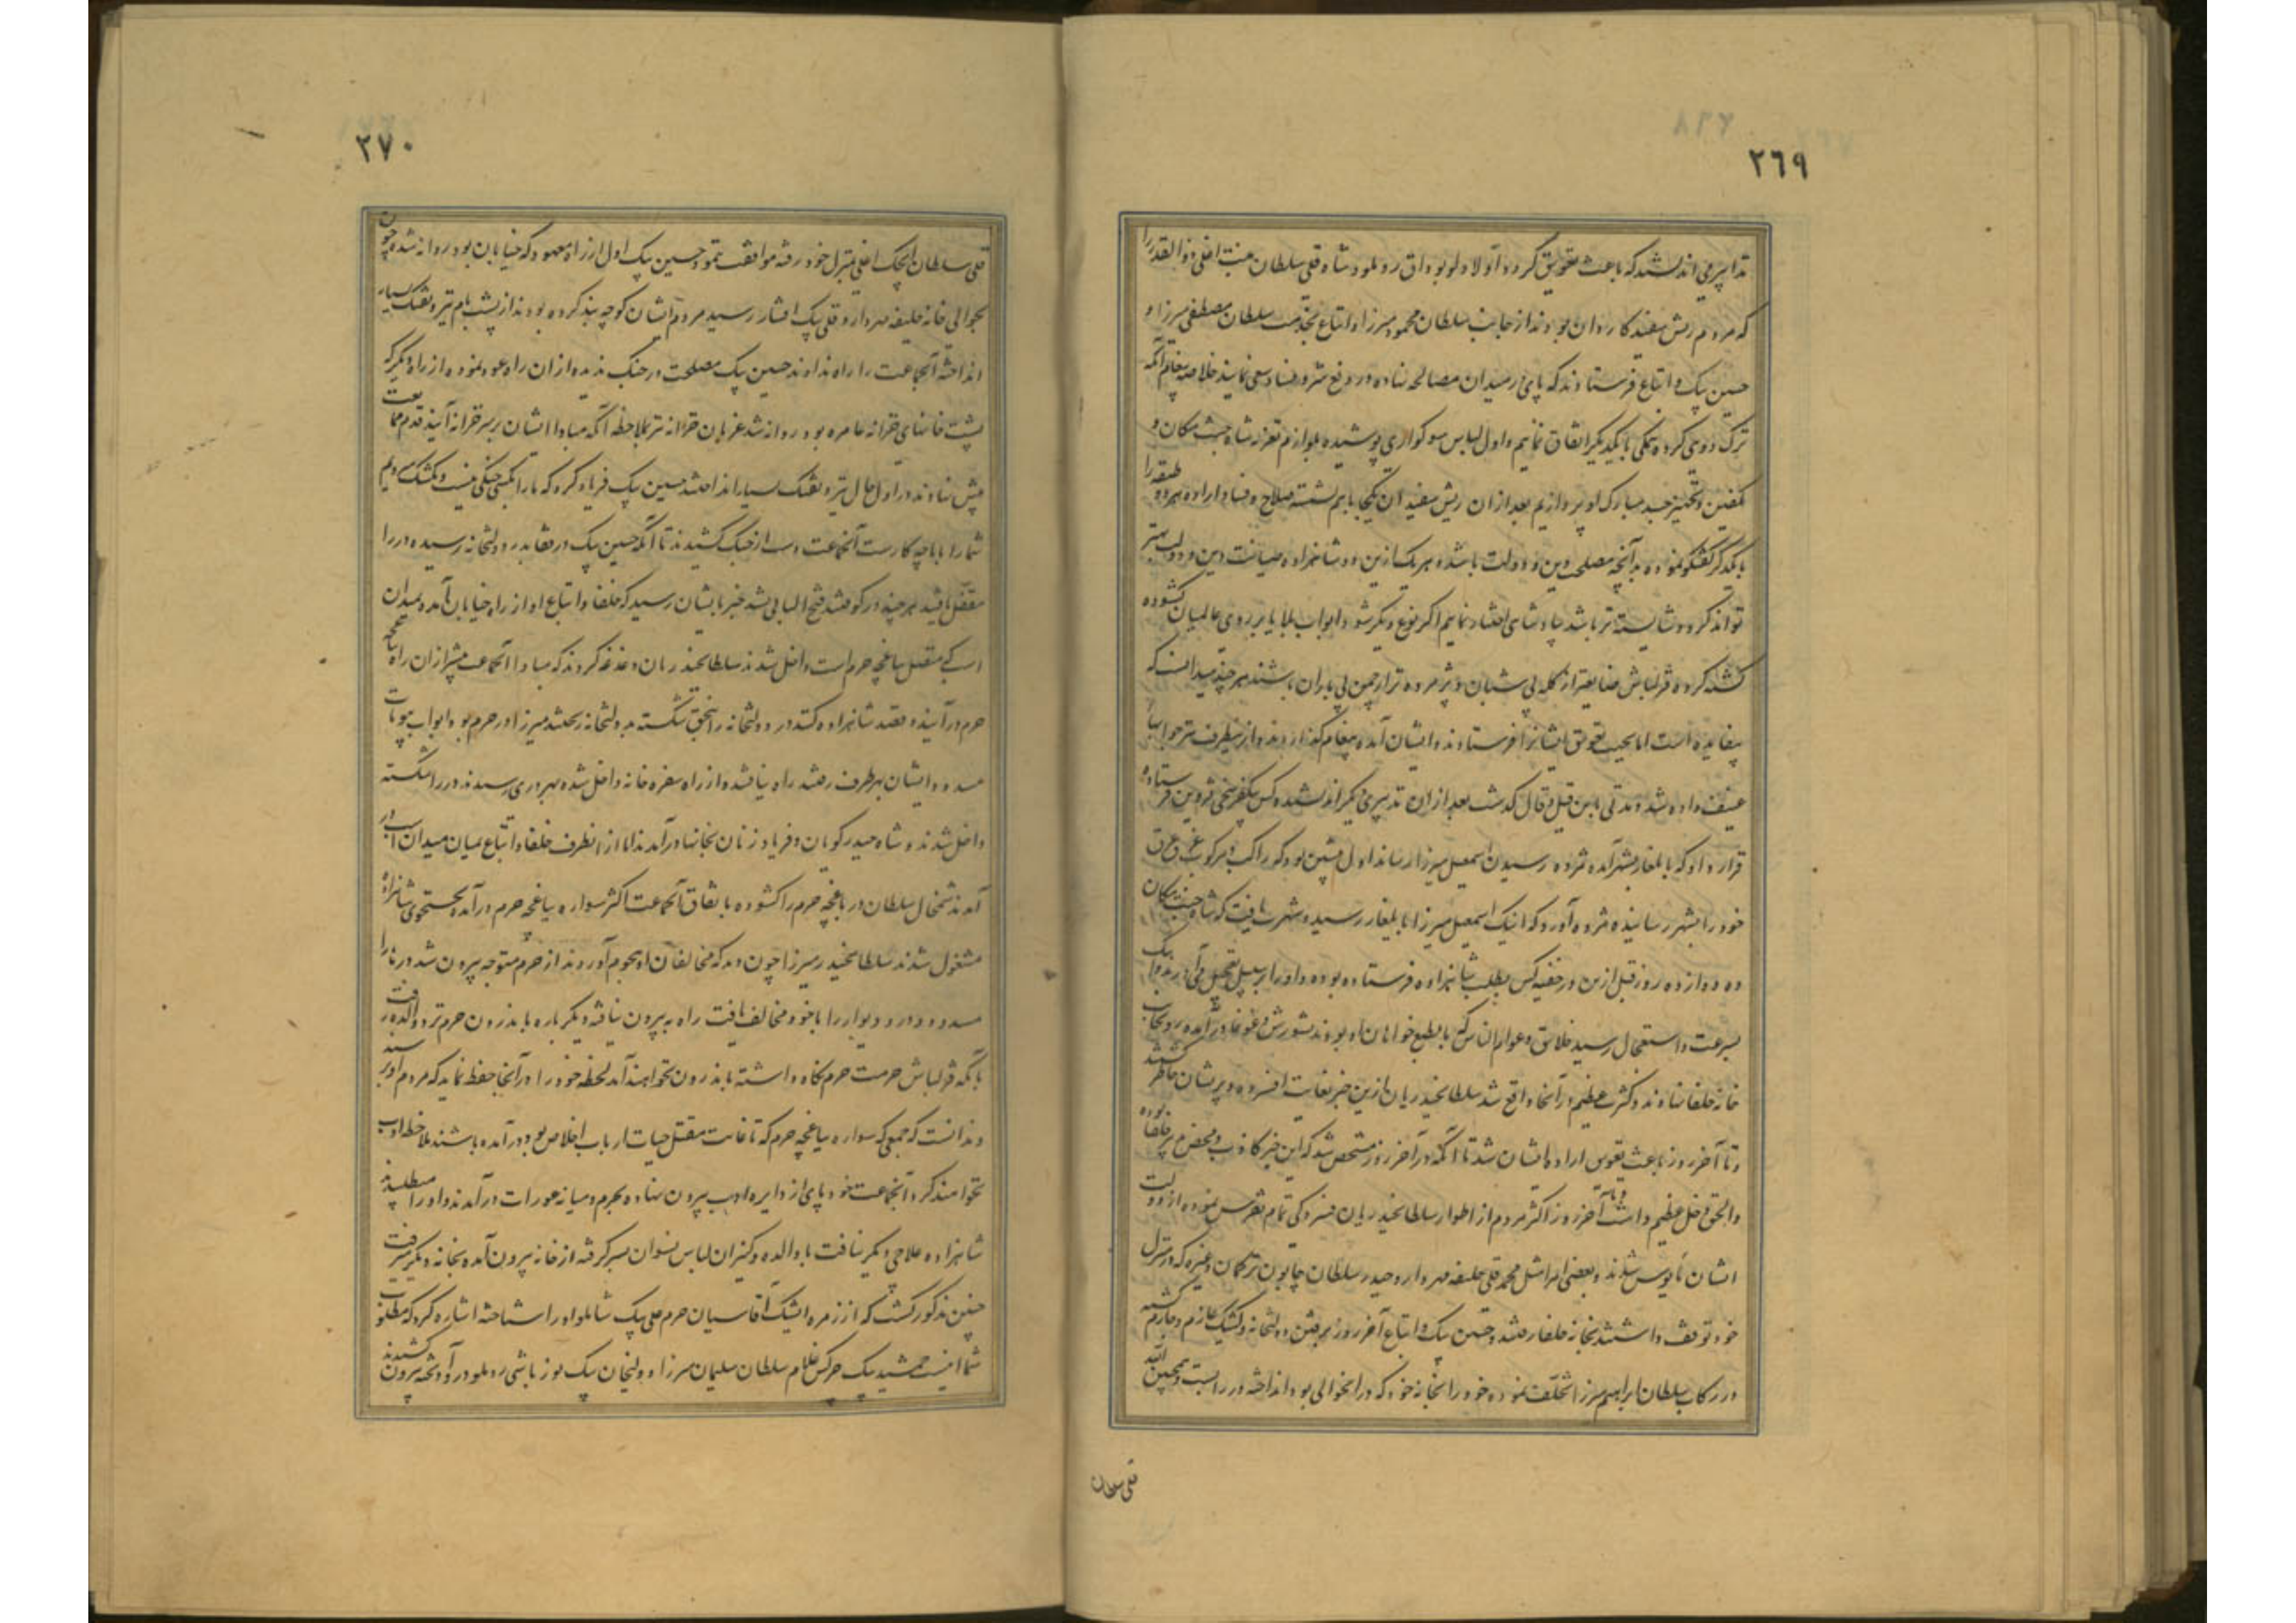 ٢٦٩
تدابیر می اندیشند که باعث تعویق گردد اولا دلو بوداق روملو و شاه قلی سلطان تبت اغلی ذوالقدر را
که مردم ریش سفید کاردان بودند از جانب سلطان محمود میرزا و اتباع بخدمت سلطان مصطفی میرزا و
حسین بیک و اتباع فرستادند که پای در میدان مصالحه نهاده در رفع شر و فساد سعی نمایند خلاصه پیغام آنکه
ترک دوی کرده همگی با یکدیگر اتفاق نمائیم و اول لباس سوگواری پوشیده بلوازم تعزیه شاه جنت مکان و
تکفین و تجهیز جسد مبارک او پردازیم بعد از آن ریش سفیدان یکجا باهم نشسته صلاح و فساد اراده هر دو طبقه را
با یکدیگر گفتگو نموده بدآنچه مصلحت دین و دولت باشد و هر یک از این دو شاهزاده صیانت دین و دولت بهتر
تواند کرد و شایسته تر باشد بپادشاهی اختیار نمائیم اگر نوع دیگر شود ابواب بلایا بر روی عالمیان گشوده
گشته گروه قزلباش ضایعتر از گله بی شبان و پژمرده تر از چمن بی باران باشند هر چند میدانست که
بیفایده است اما بجهت تعویق ایشانرا فرستادند و ایشان آمده پیغام گذاردند و از ینطرف نیز جوابهای
عنیف داده شد و مدتی باین قیل و قال گذشت بعد از آن تدبیری دیگر اندیشیده کس بیکفرسخی قزوین فرستاده
قرار داد که بایلغار بشهر آمده مژده رسیدن اسمعیل میرزا رساند اول پیشین بود که راکب و مرکوب غرق عرق
خود را بشهر رسانیده مژده آورد که اینک اسمعیل میرزا بایلغار رسید و شهرت یافت که شاه جنت مکان
ده دوازده روز قبل ازین در خفیه کس بطلب شاهزاده فرستاده بوده و او را بر سبیل تعجیل می آورند و اینک
بسرعت و استعجال رسید خلایق و عوام الناس که بالطبع خواهان او بودند بشورش و غوغا درآمده رو بجانب
خانه خلفا نهادند و کثرت عظیم در آنجا واقع شد سلطانحیدریان ازین خبر بغایت افسرده و پریشان خاطر گشتند
و تا آخر روز باعث تعویق اراده ایشان شد تا آنکه در آخر روز مشخص شد که این خبر کاذب و محض تزویر خلفا بوده
والحق دخل عظیم داشت و تا آخر روز اکثر مردم از اطوار سلطانحیدریان فسردگی تمام تفرس نموده از دولت
ایشان مأیوس شدند و بعضی امرا مثل محمد قلی خلیفه مهردار و حیدر سلطان چابوق ترکمان و غیره که در منزل
خود توقف داشتند بخانه خلفا رفتند و حسین بیک و اتباع آخر روز برفتن دولتخانه و کشیک عازم و جازم گشته
در رکاب سلطان ابراهیم میرزا تخلف نموده خود را بخانه خود که در آنحوالی بود انداخته در را بست و همچنین الله
قلی سلطان
٢٧٠
قلی سلطان ایجک اغلی بمنزل خود رفته موافقت ننمود حسین بیک اول از راه معهود که خیابان بود روانه شده چون
بحوالی خانه خلیفه مهردار و قلی بیک افشار رسید مردم ایشان کوچه بند کرده بودند از پشت بام تیر و تفنگ بسیار
انداخته آنجماعت را راه ندادند حسین بیک مصلحت در جنگ ندیده از ان راه عود نموده از راه دیگر که
پشت خانهای خزانه عامره بود روانه شد عزبان خزانه نیز بملاحظه آنکه مبادا ایشان بر سر خزانه آیند قدم ممانعت
پیش نهادند در اول حال تیر و تفنگ بسیار انداختند حسین بیک فریاد کرد که ما را بکسی جنگی نیست و بکشیک میرویم
شما را با ما چه کارست آنجماعت دست از جنگ کشیدند تا آنکه حسین بیک و رفقا بدر دولتخانه رسیده در را
مقفل یافتند هر چند در کوفتند فتح البابی نشد خبر بایشان رسید که خلفا و اتباع او از راه خیابان آمده بمیدان
اسب که متصل بباغچه حرم است داخل شدند سلطانحیدریان دغدغه کردند که مبادا آنجماعت پیشتر از ان راه بباغچه
حرم درآیند و قصد شاهزاده کنند در دولتخانه را بتخماق شکسته بدولتخانه ریختند میرزا در حرم بود و ابواب بیوتات
مسدود و ایشان بهر طرف رفتند راه نیافتند و از راه سفره خانه داخل شده بهر دری رسیدند در را شکسته
داخل شدند و شاه حیدر گویان و فریاد زنان بخانها درآمدند اما از انطرف خلفا و اتباع بمیان میدان اسب در
آمدند شمخال سلطان در باغچه حرم را گشوده باتفاق آنجماعت اکثر سواره بباغچه حرم درآمده بجستجوی شاهزاده
مشغول شدند سلطانحیدر میرزا چون دید که مخالفان او هجوم آوردند از حرم متوجه بیرون شد درها را
مسدود و در و دیوار را با خود مخالف یافت راه به بیرون نیافته دیگر باره باندرون حرم تردد والده رفت
بآنکه قزلباش حرمت حرم نگاه داشته باندرون نخواهند آمد لحظه خود را در آنجا حفظ نماید که مردم او برسند
و ندانست که جمعی که سواره بباغچه حرم که تا غایت مقتل حیات ارباب اخلاص بود درآمده باشند ملاحظه ادب
نخواهند کرد و آنجماعت خود پای از دایره ادب بیرون نهاده بحرم و میانه عورات درآمدند و او را میطلبیدند
شاهزاده علاجی دیگر نیافت با والده و کنیزان لباس نسوان بسر گرفته از خانه بیرون آمده بخانه دیگر میرفت
چنین مذکور گشت که از زمره ایشیک آقاسیان حرم علی بیک شاملو او را شناخته اشاره کرد که مطلوب
شما اینست جمشید بیک چرکس غلام سلطان سلیمان میرزا و ولیخان بیک یوزباشی روملو در او آویخته بیرون کشیدند